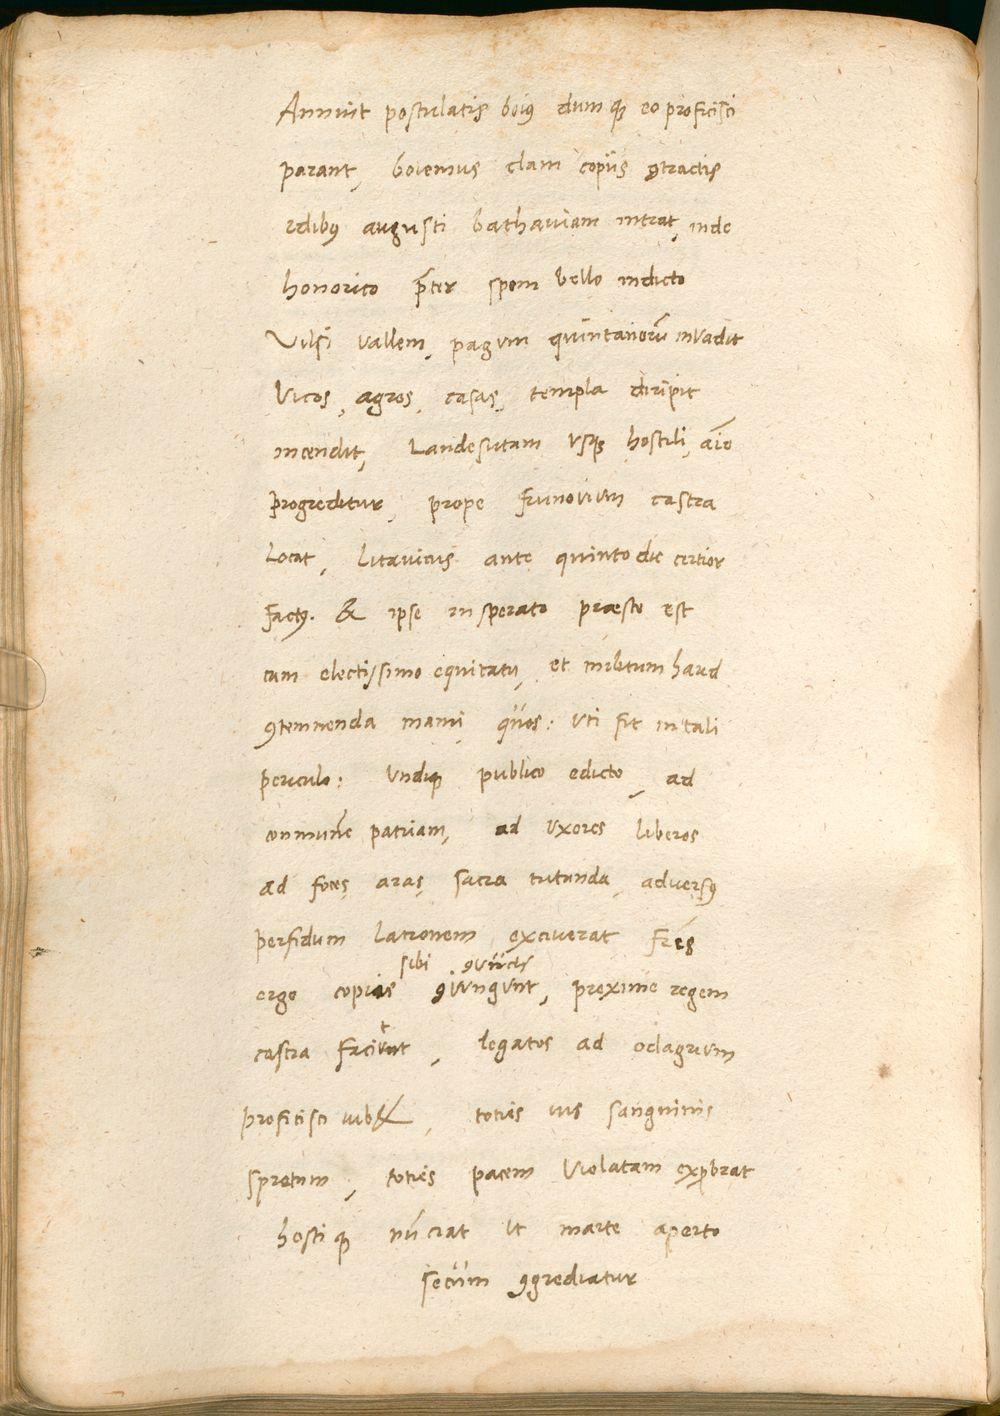 Annuit postulatis boiꝰ dumqꝫ eo proficisci
parant, boiemus clam copiis ꝯtractis
idibꝰ augusti bathauiam intrat, inde
honorico p̄ter spem bello indicto
Vilsi vallem, pagum quintanorū invadit
Vicos, agros, casas, templa diripit
incendit, Landesutam vsqꝫ hostili, aīo
progreditur, prope frunouium castra
locat, litauicus ante quinto die certior
factꝰ. & ipse insperato praesto est
cum electissimo equitatu, et militum haud
ꝯtemnenda manu, quos: vti fit in tali
periculo: vndiqꝫ publico edicto, ad
conmunē patriam, ad vxores liberos
ad foces, aras, sacra tutanda, adversꝰ
perfidum latronem exciuerat fr̄es
sibi ꝯuīctis
ergo copias ꝯiungunt, proxime regem
castra faciunt, legatos ad odagrum
proficisci iub&, toties ius sanguinis
spretum, toties pacem violatam exprobrat
hostiqꝫ nūciat ut marte aperto
secum ꝯgrediatur